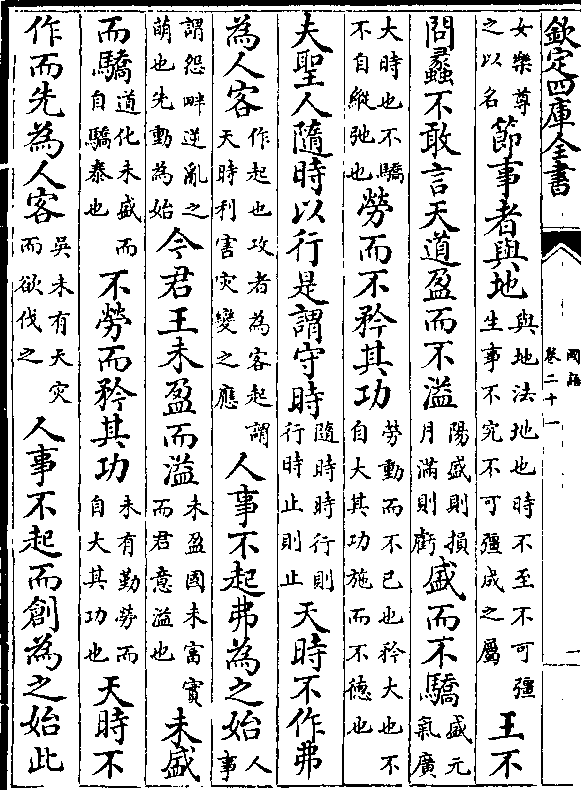 欽定四庫全書
國語
卷二十一
一
女樂尊之以名節事者與地與地法地也時不至不可彊生事不究不可彊成之屬王不
問蠡不敢言天道盈而不溢陽盛則損月滿則虧盛而不驕盛元氣廣
大時也不驕不自縱弛也勞而不矜其功勞動而不已也矜大也不自大其功施而不德也
夫聖人隨時以行是謂守時隨時時行則行時止則止天時不作弗
為人客作起也攻者為客起謂天時利害灾變之應人事不起弗為之始人事
謂怨畔逆亂之萌也先動為始今君王未盈而溢未盈國未富實而君意溢也未盛
而驕道化未盛而自驕泰也不勞而矜其功未有勤勞而自大其功也天時不
作而先為人客吳未有天灾而欲伐之人事不起而創為之始此